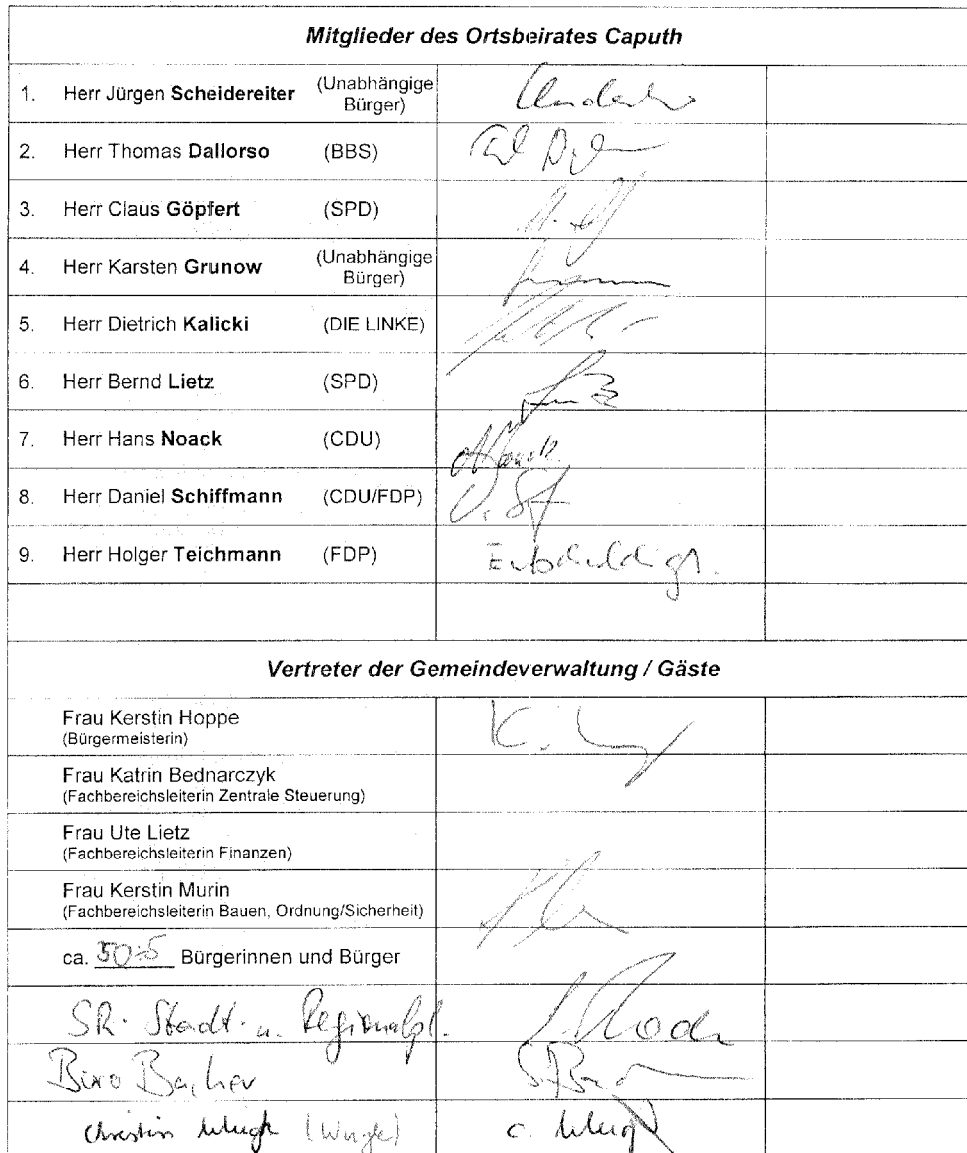 Mitglieder des Ortsbeirates Caputh
1. Herr Jürgen Scheidereiter (Unabhängige Bürger)
2. Herr Thomas Dallorso (BBS)
3. Herr Claus Göpfert (SPD)
4. Herr Karsten Grunow (Unabhängige Bürger)
5. Herr Dietrich Kalicki (DIE LINKE)
6. Herr Bernd Lietz (SPD)
7. Herr Hans Noack (CDU)
8. Herr Daniel Schiffmann (CDU/FDP)
9. Herr Holger Teichmann (FDP) Entschuldigt.
Vertreter der Gemeindeverwaltung / Gäste
Frau Kerstin Hoppe
(Bürgermeisterin)
Frau Katrin Bednarczyk
(Fachbereichsleiterin Zentrale Steuerung)
Frau Ute Lietz
(Fachbereichsleiterin Finanzen)
Frau Kerstin Murin
(Fachbereichsleiterin Bauen, Ordnung/Sicherheit)
ca. Bürgerinnen und Bürger
SR. Stadt- u. Regionalpl.
Büro
Christin